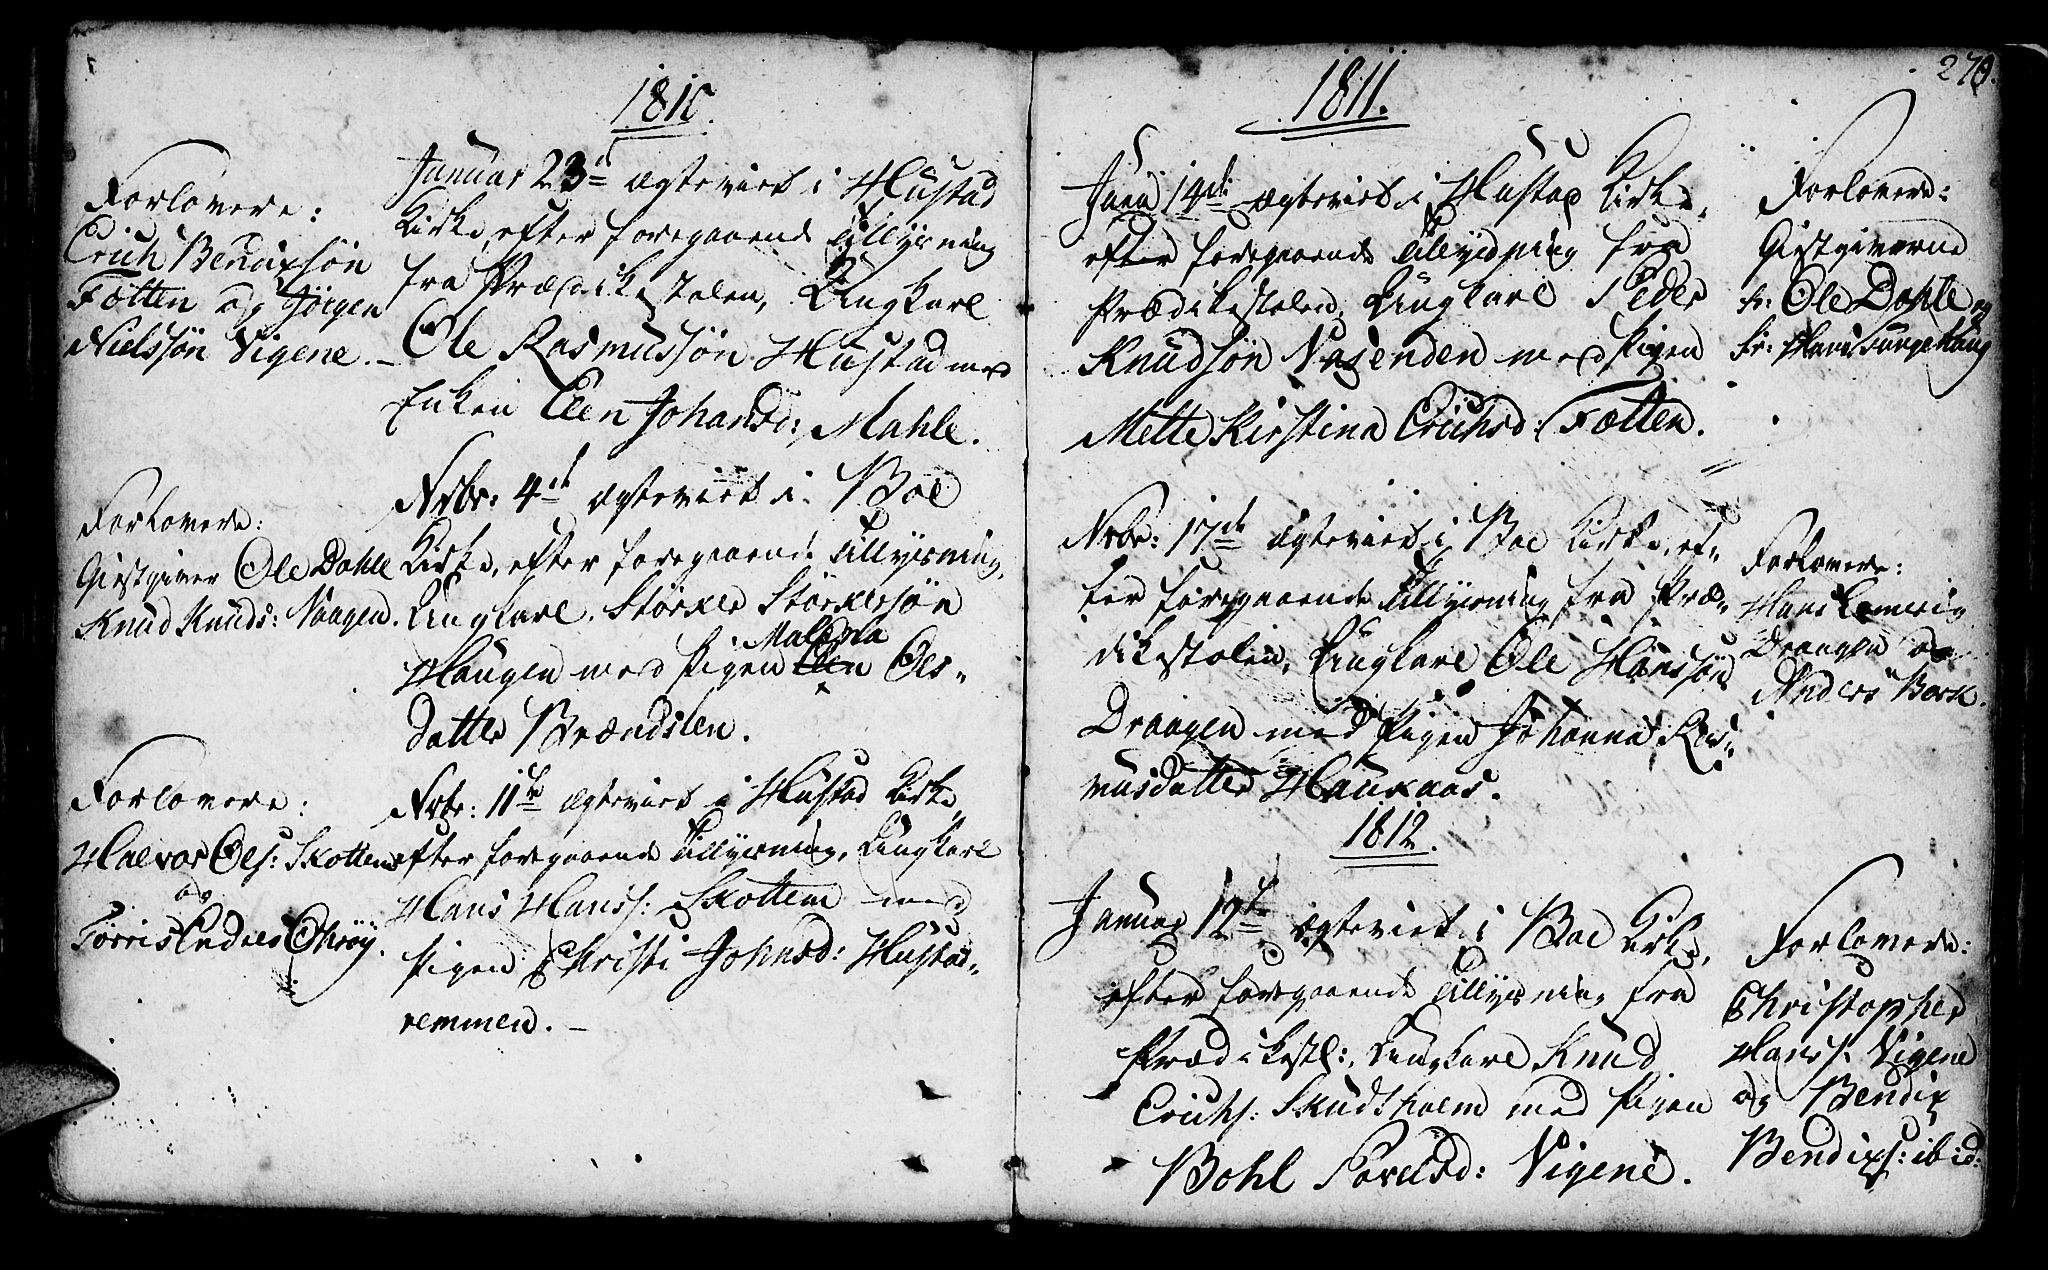 1810.
Forlovere:
Erich Bendixsøn
Fætten og Jørgen
Nielssøn Vigene.
Januar 23d ægteviet i Hustad
Kirke, efter foregaaende Tillysning
fra Prædikestolen, Ungkarl
Ole Rasmussøn Hustad med
Enken Elen Johansd: Mahle.
Forlovere:
Giestgiver Ole Dahle
Knud Knuds: Naagen.
Nvbr: 4de ægteviet i Boe
Kirke, efter foregaaende Tillysning,
Ungkarl Størker Størkersøn
Malena
Haugen med Pigen Elen Ols-
datter Brændslen.
Forlovere:
Halvor Ols: Skottem
og
Torris Endres Ohrøy.
Nvbr: 11te ægteviet i Hustad Kirke
efter foregaaende Tillysning, Ungkarl
Hans Hanss: Skottem med
Pigen Christi Johnsd: Hustad-
remmen. -
270.
1811.
Juni 14de ægteviet i Hustad Kirke,
efter foregaaende Tillysning fra
Prædikestolen, Ungkarl Peder
Knudsøn Nosenden med Pigen
Mette Kirstina Erichsd: Fætten.
Forlovere:
Giestgiverne
Hr: Ole Dahle og
Hr: Hans Haug
Nvbr: 17de ægteviet i Boe Kirke, ef-
ter foregaaende Tillysning fra Præ-
dikestolen, Ungkarl Ole Hanssøn
Draagen med Pigen Johanna Ras-
musdatter Haukaas.
Forlovere:
Hans
Draagen og
Anders Bork.
1812.
Januar 12te ægteviet i Boe Kirke,
efter foregaaende Tillysning fra
Prædikestl:, Ungkarl Knud
Erichs: Skudsholm med Pigen
Bohl Sorelsd: Vigene.
Forlovere:
Christopher
Hanss: Vigene
og Bendix
Bendixs: ibid: